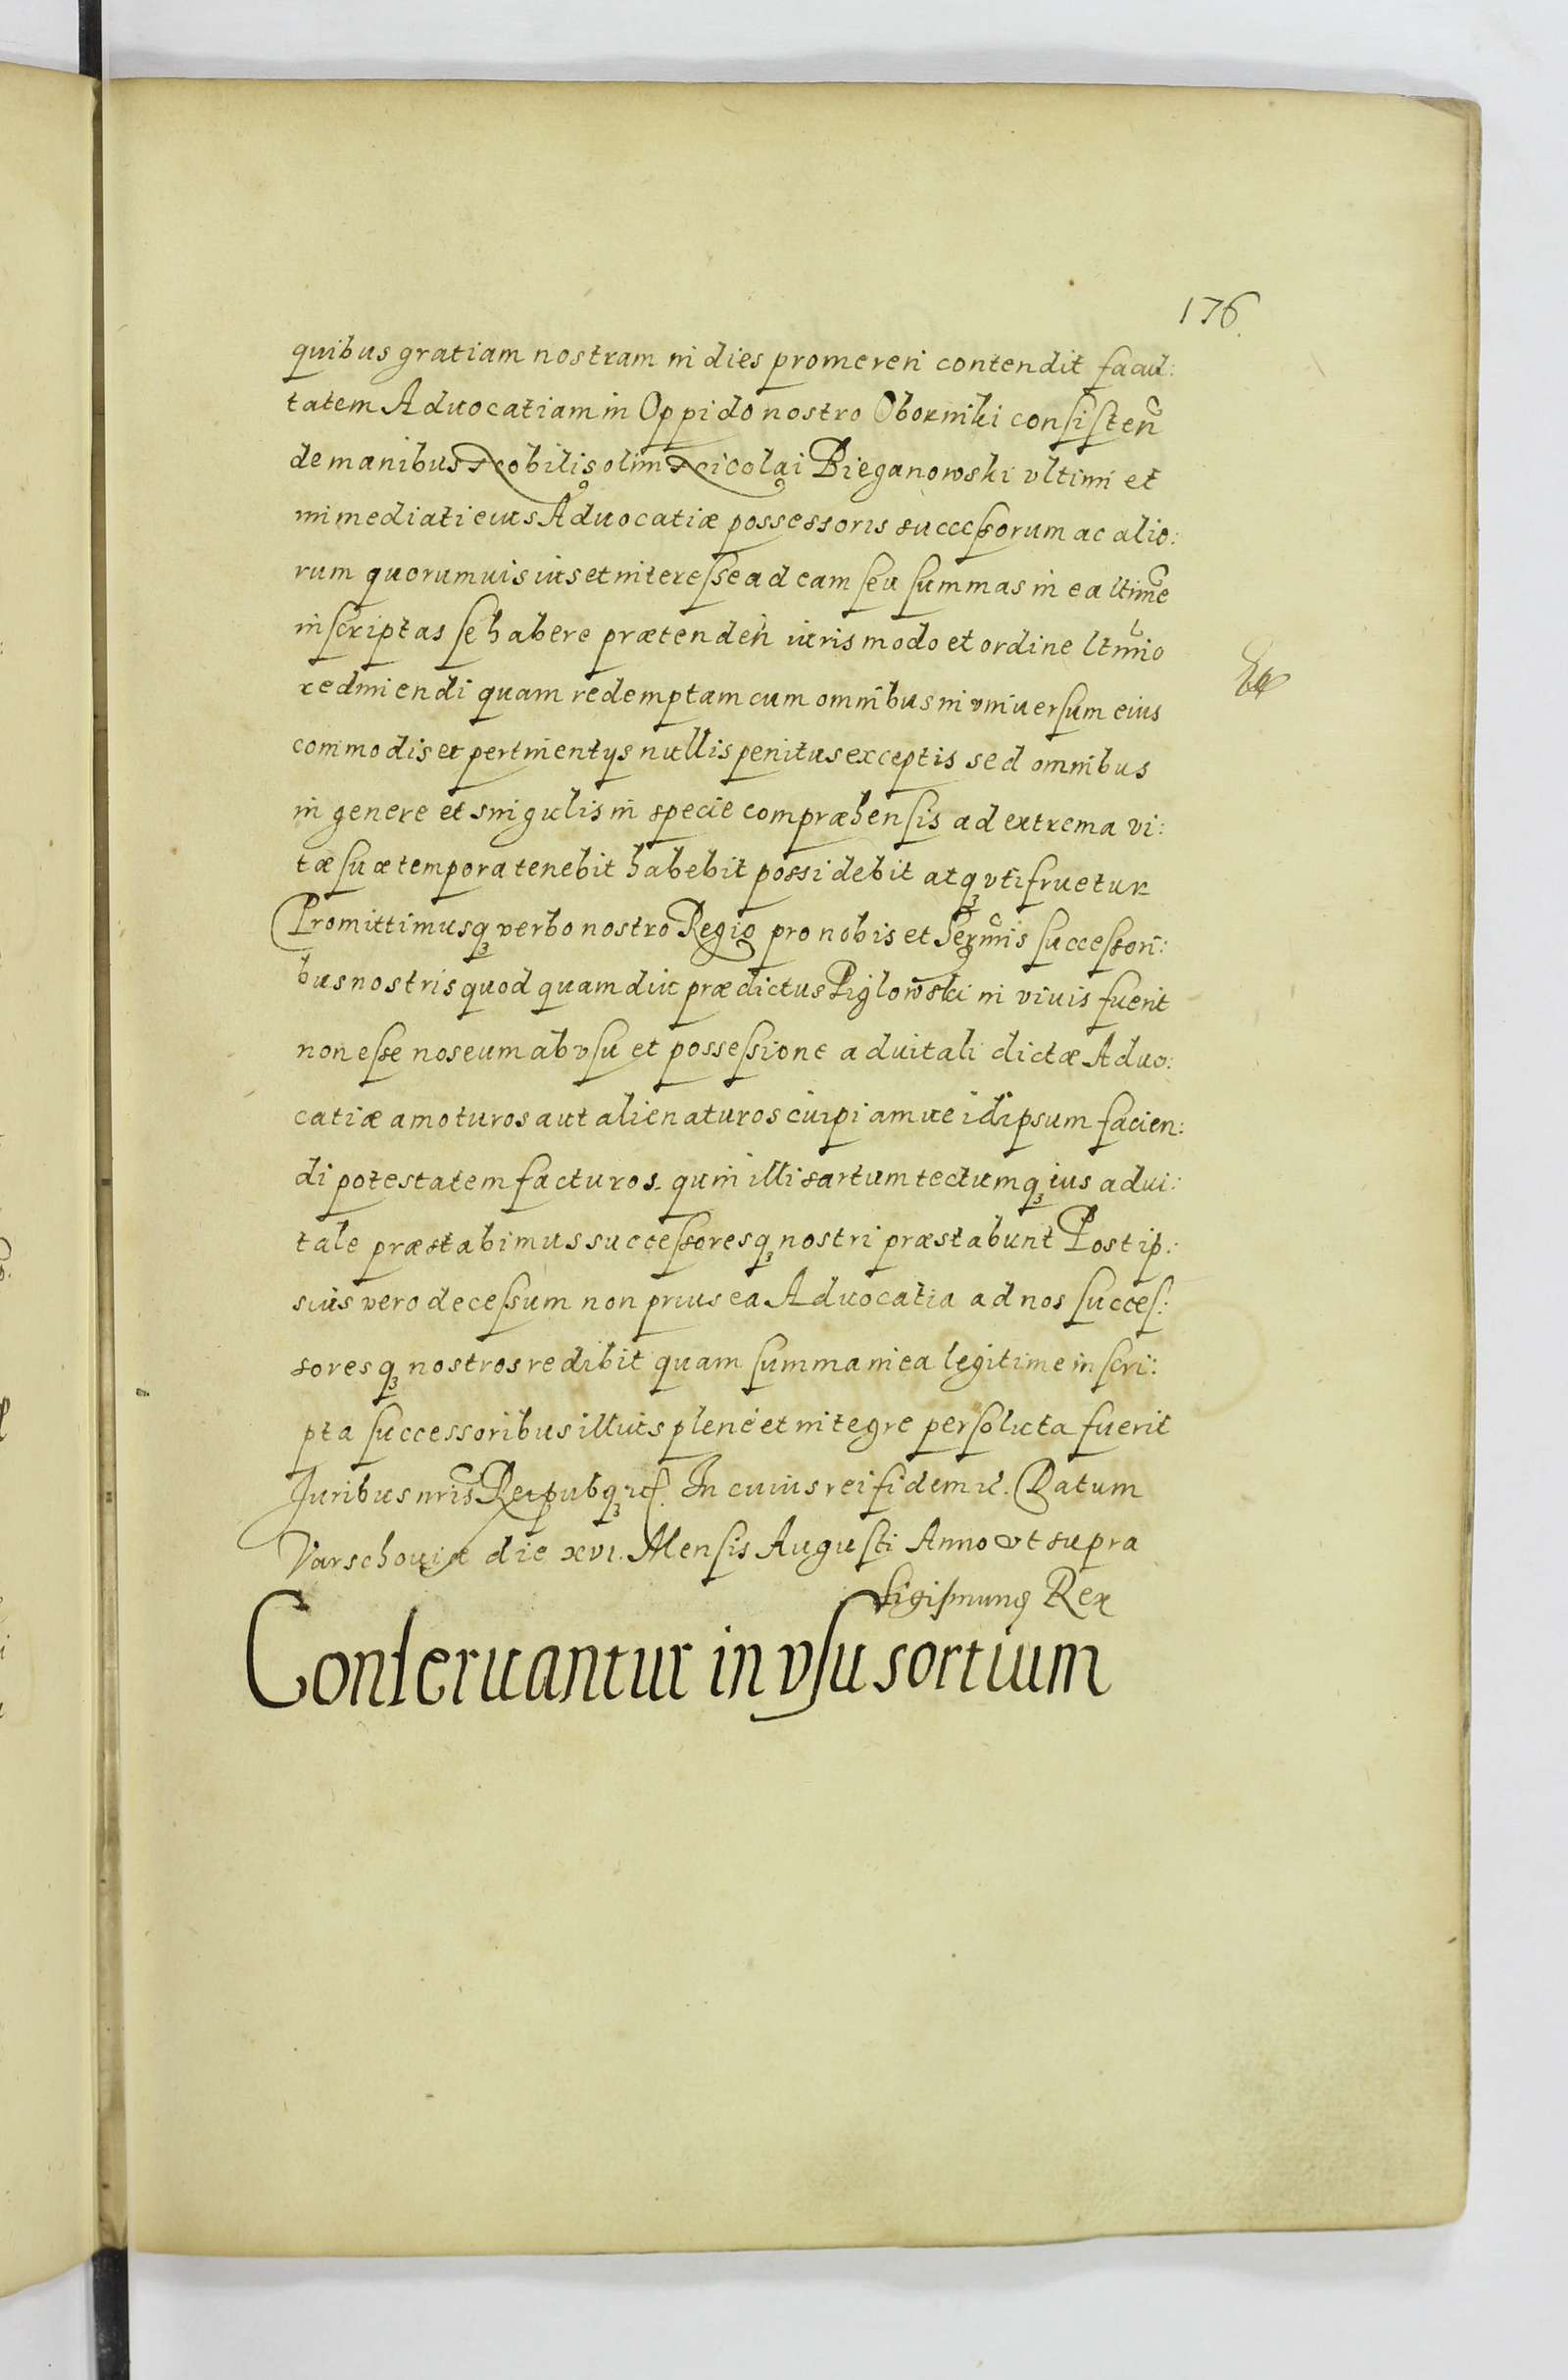 176.
quibus gratiam nostram in dies promereri contendit facul:
tatem Aduocatiam in Oppido nostro Oborniki consisteñ
de manibus Nobilis olim Nicolai Bieganowski vltimi et
immediati eius Aduocatiæ possessoris successorum ac alio:
rum quorumuis ius et interesse ad eam seu summas in ea ltime
inscriptas se habere prætendeñ iuris modo et ordine ltimo
redimendi quam redemptam cum omnibus in vniuersum eius
commodis et pertinentijs nullis penitus exceptis sed omnibus
in genere et singulis in specie compræhensis ad extrema vi:
tæ suæ tempora tenebit habebit possidebit atqꝫ vtifruetur
Promittimusqꝫ verbo nostro Regio pro nobis et Sermis successori:
bus nostris quod quam diu prædictus Piglowski in viuis fuerit
non esse nos eum ab vsu et possessione aduitali dictæ Aduo:
catiæ amoturos aut alienaturos cuipiamue id ipsum facien:
di potestatem facturos. quin illi sartum tectumqꝫ ius adui:
tale præstabimus successoresqꝫ nostri præstabunt Post ip:
sius vero decessum non prius ea Aduocatia ad nos succes:
soresqꝫ nostros redibit quam summa in ea legitime inscri:
pta successoribus illius plene et integre persoluta fuerit
Juribus nris Reipubqꝫ In cuius rei fidem Datum
Varschouiæ die xvi. Mensis Augusti Anno vt supra
Sigismunꝰ Rex
Conseruantur in vsu sortium